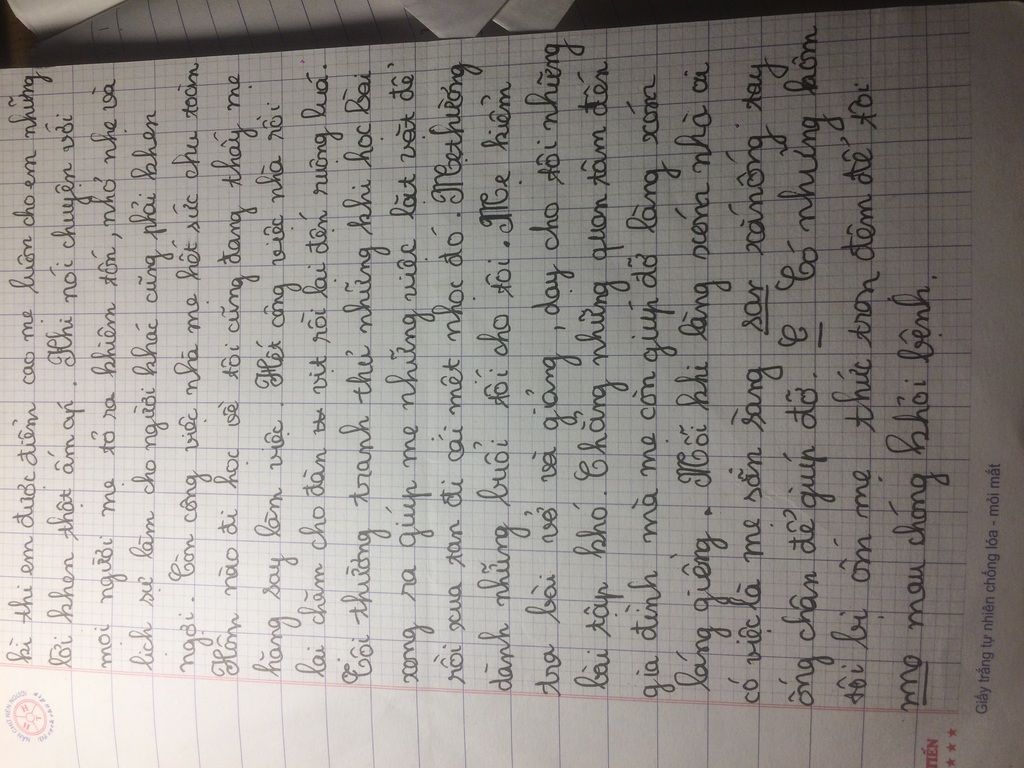 kì thi em được điểm cao mẹ luôn cho em những
lời khen thật ấm áp. Khi nói chuyện với
mọi người mẹ tỏ ra khiêm tốn, nhỏ nhẹ và
lịch sự làm cho người khác cũng phải khen
ngợi. Còn công việc nhà mẹ hết sức chu toàn
Hôm nào đi học về tôi cũng đang thấy mẹ
hăng say làm việc. Hết công việc nhà rồi
lại chăm cho đàn vịt rồi lại đến ruộng lúa.
Tôi thường tranh thủ những khi học bài
xong ra giúp mẹ những việc lặt vặt để
rồi xua tan đi cái mệt nhọc đó. Mẹ thường
dành những buổi tối cho tôi. Mẹ kiểm
tra bài vở và giảng, dạy cho tôi những
bài tập khó. Chẳng những quan tâm đến
gia đình mà mẹ còn giúp đỡ làng xóm
láng giềng. Mỗi khi làng xóm nhà ai
có việc là mẹ sẵn sàng sar xánống tay
ống chân để giúp đỡ. C Có những hôm
tôi bị ốm mẹ thức tron đêm để tôi
mẹ mau chóng khỏi bệnh.
Giấy trắng tự nhiên chống lóa - mỏi mắt
TIẾN